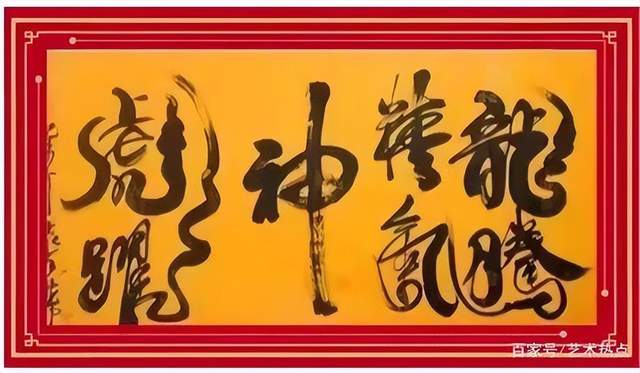 龍騰
精氣
神
虎躍
百家号/艺术热点